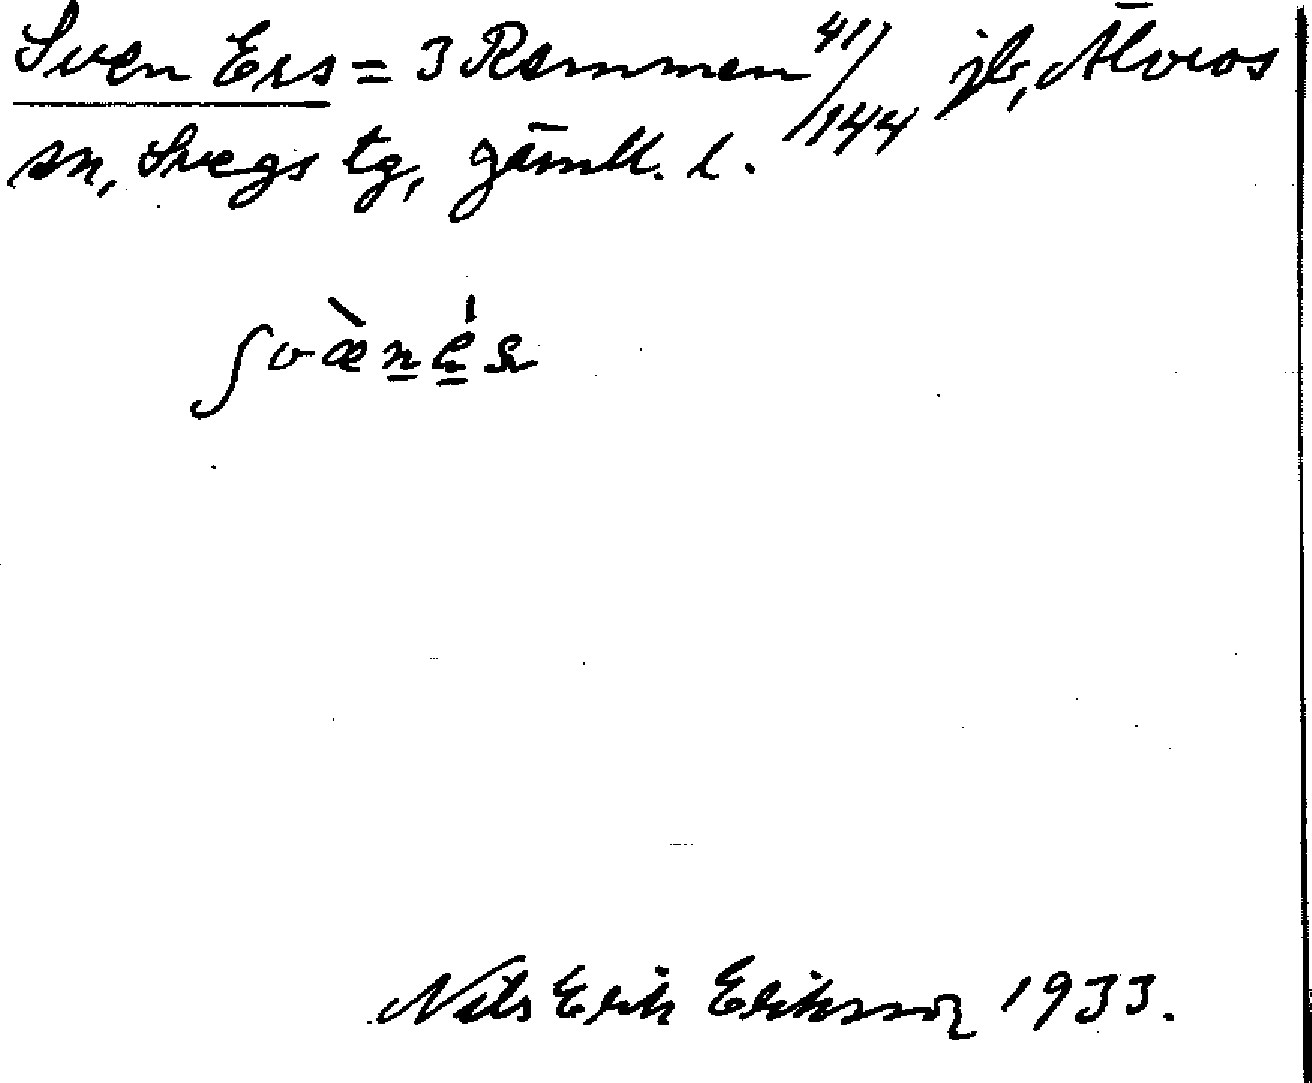 Sven Ers = 3 Remmen 41/144 jb, Älvros
sn, Svegs tg, Jämtl. l.
Nils Erik Eriksson 1933.